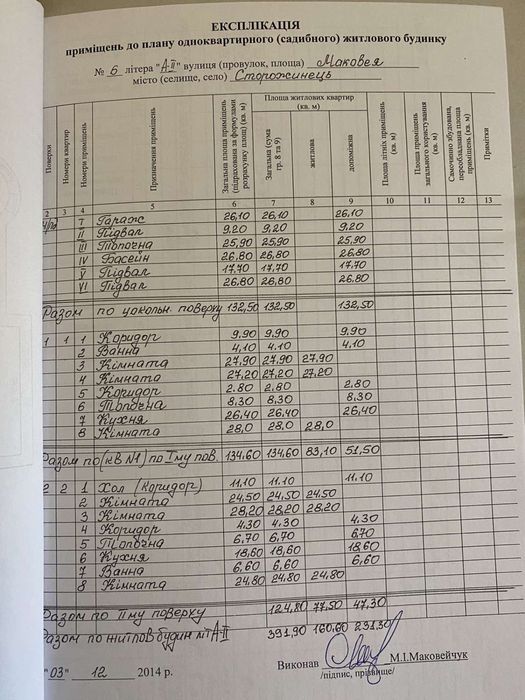 ЕКСПЛІКАЦІЯ
приміщень до плану одноквартирного (садибного) житлового будинку
№ 6 літера "А-ІІ" вулиця (провулок, площа) Маковея
місто (селище, село) Сторожинець
Поверхи Номери квартир Номери приміщень Призначення приміщень Загальна площа приміщень (підрахована за формулами розрахунку площ) (кв. м) Площа житлових квартир (кв. м) Загальна (сума гр. 8 та 9) житлова допоміжна Площа літніх приміщень (кв. м) Площа приміщень загального користування (кв. м) Самочинно збудована, переобладнана площа приміщень (кв. м) Примітки
2 3 4 5 6 7 8 9 10 11 12 13
І Гараж 26,10 26,10 26,10
ІІ Підвал 9,20 9,20 9.20
ІІІ Топочна 25,90 25,90 25.90
IV Басейн 26,80 26,80 26.80
V Підвал 17,70 17,70 17.70
VI Підвал 26,80 26,80 26.80
Разом по цокольн. поверху 132,50 132,50 132,50
1 1 1 Коридор 9,90 9,90 9.90
2 Ванна 4,10 4.10 4,10
3 Кімната 27,90 27,90 27,90
4 Кімната 27,20 27,20 27,20
5 Коридор 2.80 2.80 2.80
6 Топочна 8,30 8,30 8,30
7 Кухня 26,40 26,40 26,40
8 Кімната 28,0 28,0 28,0
Разом по (кв №1) по Іму пов. 134,60 134,60 83,10 51,50
2 2 1 Хол (коридор) 11,10 11,10 11.10
2 Кімната 24,50 24,50 24,50
3 Кімната 28,20 28,20 28,20
4 Коридор 4.30 4,30 4,30
5 Топочна 6,70 6,70 6.70
6 Кухня 18,60 18,60 18,60
7 Ванна 6,60 6,60 6,60
8 Кімната 24,80 24,80 24,80
Разом по ІІму поверху 124,80 77,50 47,30
Разом по житлов будин літ А-ІІ 391,90 160,60 231,30
"03" 12 2014 р. Виконав М.І.Маковейчук
/підпис, прізвище/